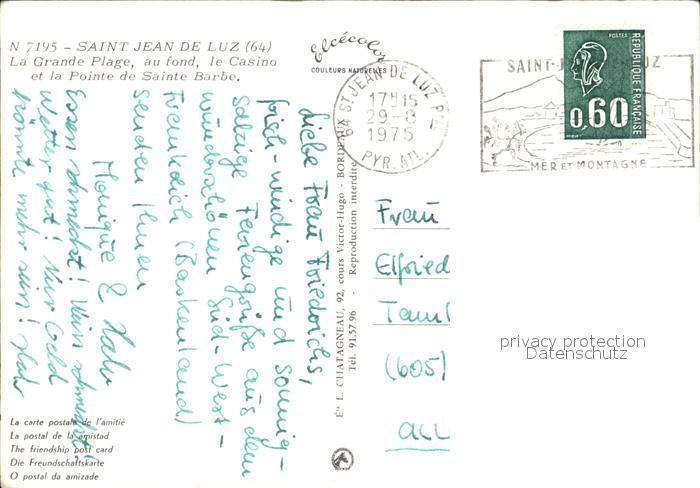 N 7195 – SAINT JEAN DE LUZ (64)
La Grande Plage, au fond, le Casino
et la Pointe de Sainte Barbe.
Elcécolor
COULEURS NATURELLES
64 ST JEAN DE LUZ PPAL
17H15
29-8
1975
PYR. ATL.
SAINT-J LUZ
MER ET MONTAGNE
POSTES
RÉPUBLIQUE FRANÇAISE
0,60
Liebe Frau Friedrichs,
frisch-windige und sonnig-
salzige Feriengrüße aus dem
wundervollen Süd-West-
Frankreich (Baskenland)
senden Ihnen
Monique &
Essen schmeckt! Wein schmeckt!
Wetter gut! Nur Geld
könnte mehr sein!
Éts L. CHATAGNEAU, 92, cours Victor-Hugo - BORDEAUX
Tél. 91.57.96 - Reproduction interdite
Frau
Elfried
(605)
privacy protection
Datenschutz
La carte postale de l'amitié
La postal de la amistad
The friendship post card
Die Freundschaftskarte
O postal da amizade